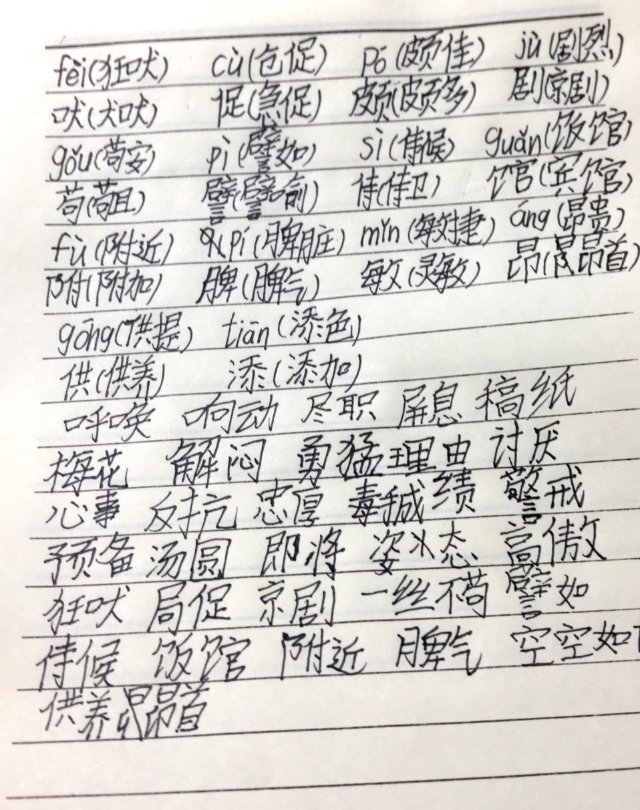 fèi(狂吠) cù(仓促) pō(颇佳) jù(剧烈)
吠(犬吠) 促(急促) 颇(颇多) 剧(京剧)
gǒu(苟安) pì(譬如) sì(侍候) guǎn(饭馆)
苟(苟且) 譬(譬喻) 侍(侍卫) 馆(宾馆)
fù(附近) pí(脾脏) mǐn(敏捷) áng(昂贵)
附(附加) 脾(脾气) 敏(灵敏) 昂(昂首)
gōng(供提) tiān(添色)
供(供养) 添(添加)
呼唤 响动 尽职 屏息 稿纸
梅花 解闷 勇猛 理由 讨厌
心事 反抗 忠厚 毒 绩 警戒
预备 汤圆 即将 姿态 高傲
狂吠 局促 京剧 一丝不苟 譬如
侍候 饭馆 附近 脾气 空空如
供养 昂首